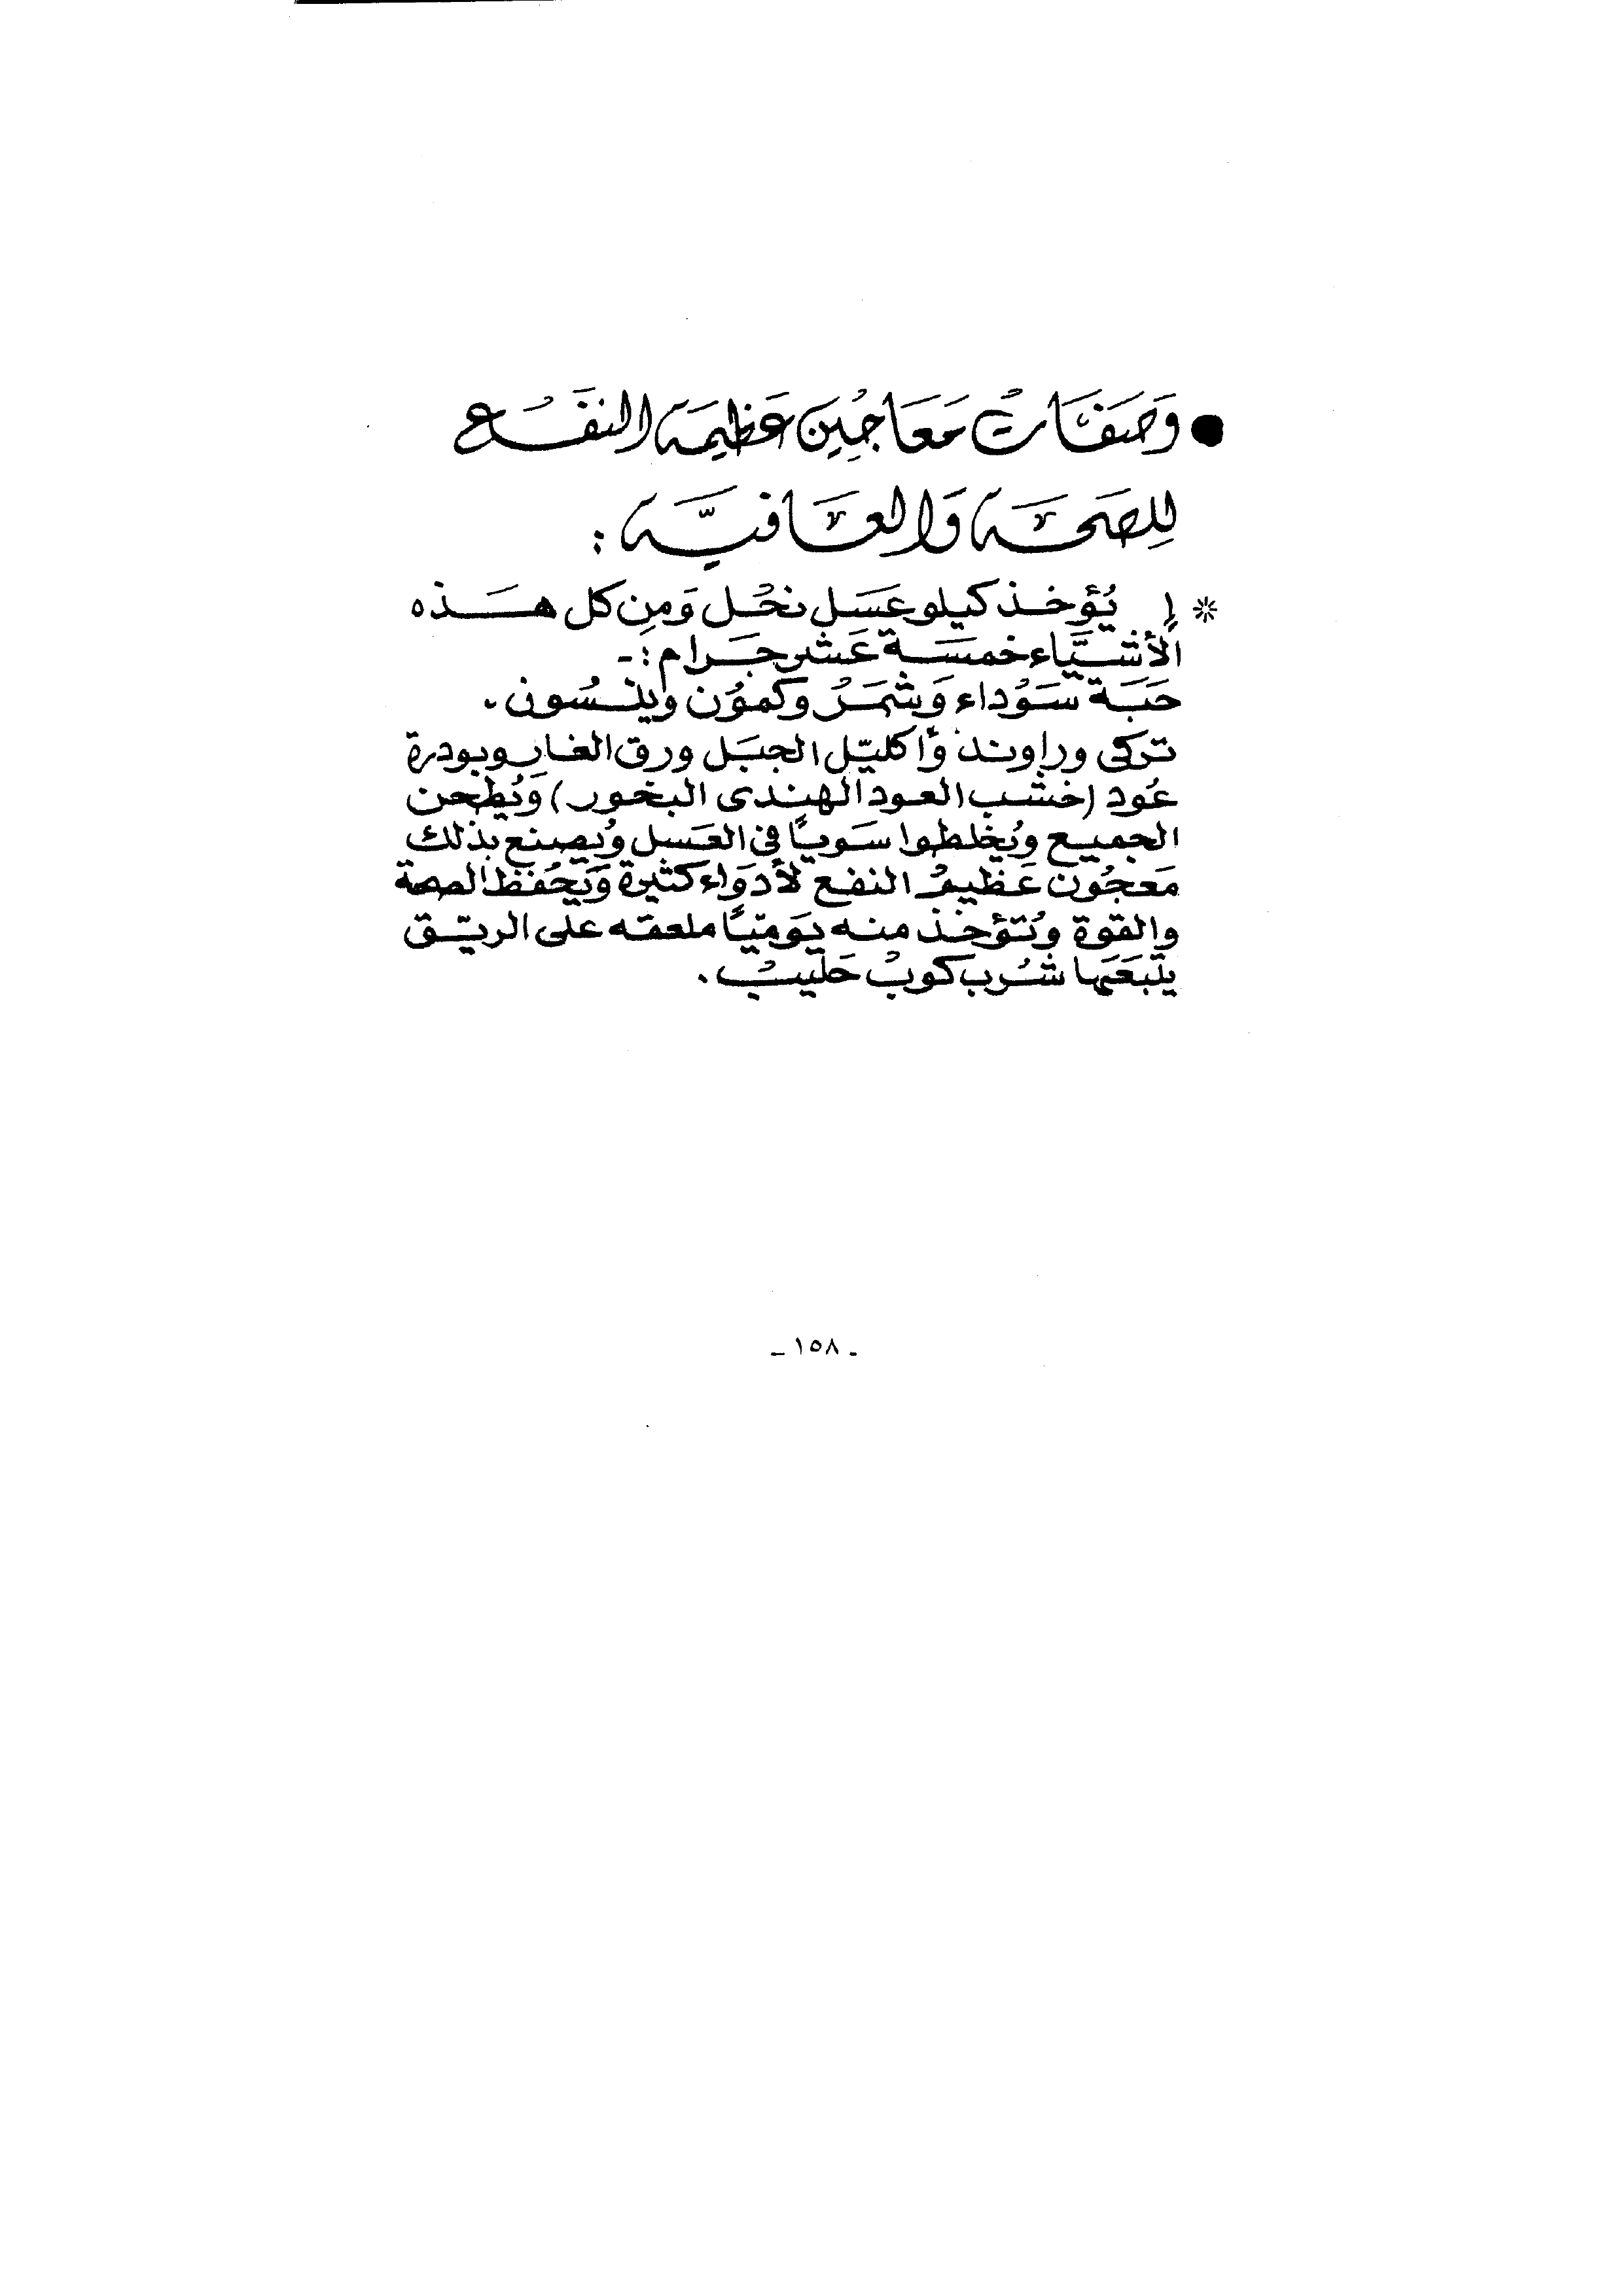 ● وَصَفَاتُ مَعَاجِين عَظِيمَة النفَع
لِلصَحَة وَالعَافيَّة :
* ١ يُؤخذ كيلو عَسَل نحْل وَمِن كل هَذه
الأشيَاء خمسَة عَشر جَرام :-
حَبَة سَوْداء وَشمَرْ وكموُن وينسُون .
تركى وراوند وَأكليل الجبَل ورق الغار وبودرة
عُود (خشب العود الهندى البخور) وَيُطحن
الجميع ويُخلطوا سَوياً في العَسل ويُصنع بذلك
مَعجُون عَظيمْ النفع لأدوَاء كثيرة وَيَحْفظ الصحة
والقوة وتُؤخذ منه يَوميًا ملعقه على الريق
يتبَعَها شرْب كوبْ حَليبْ .
- ١٥٨ -